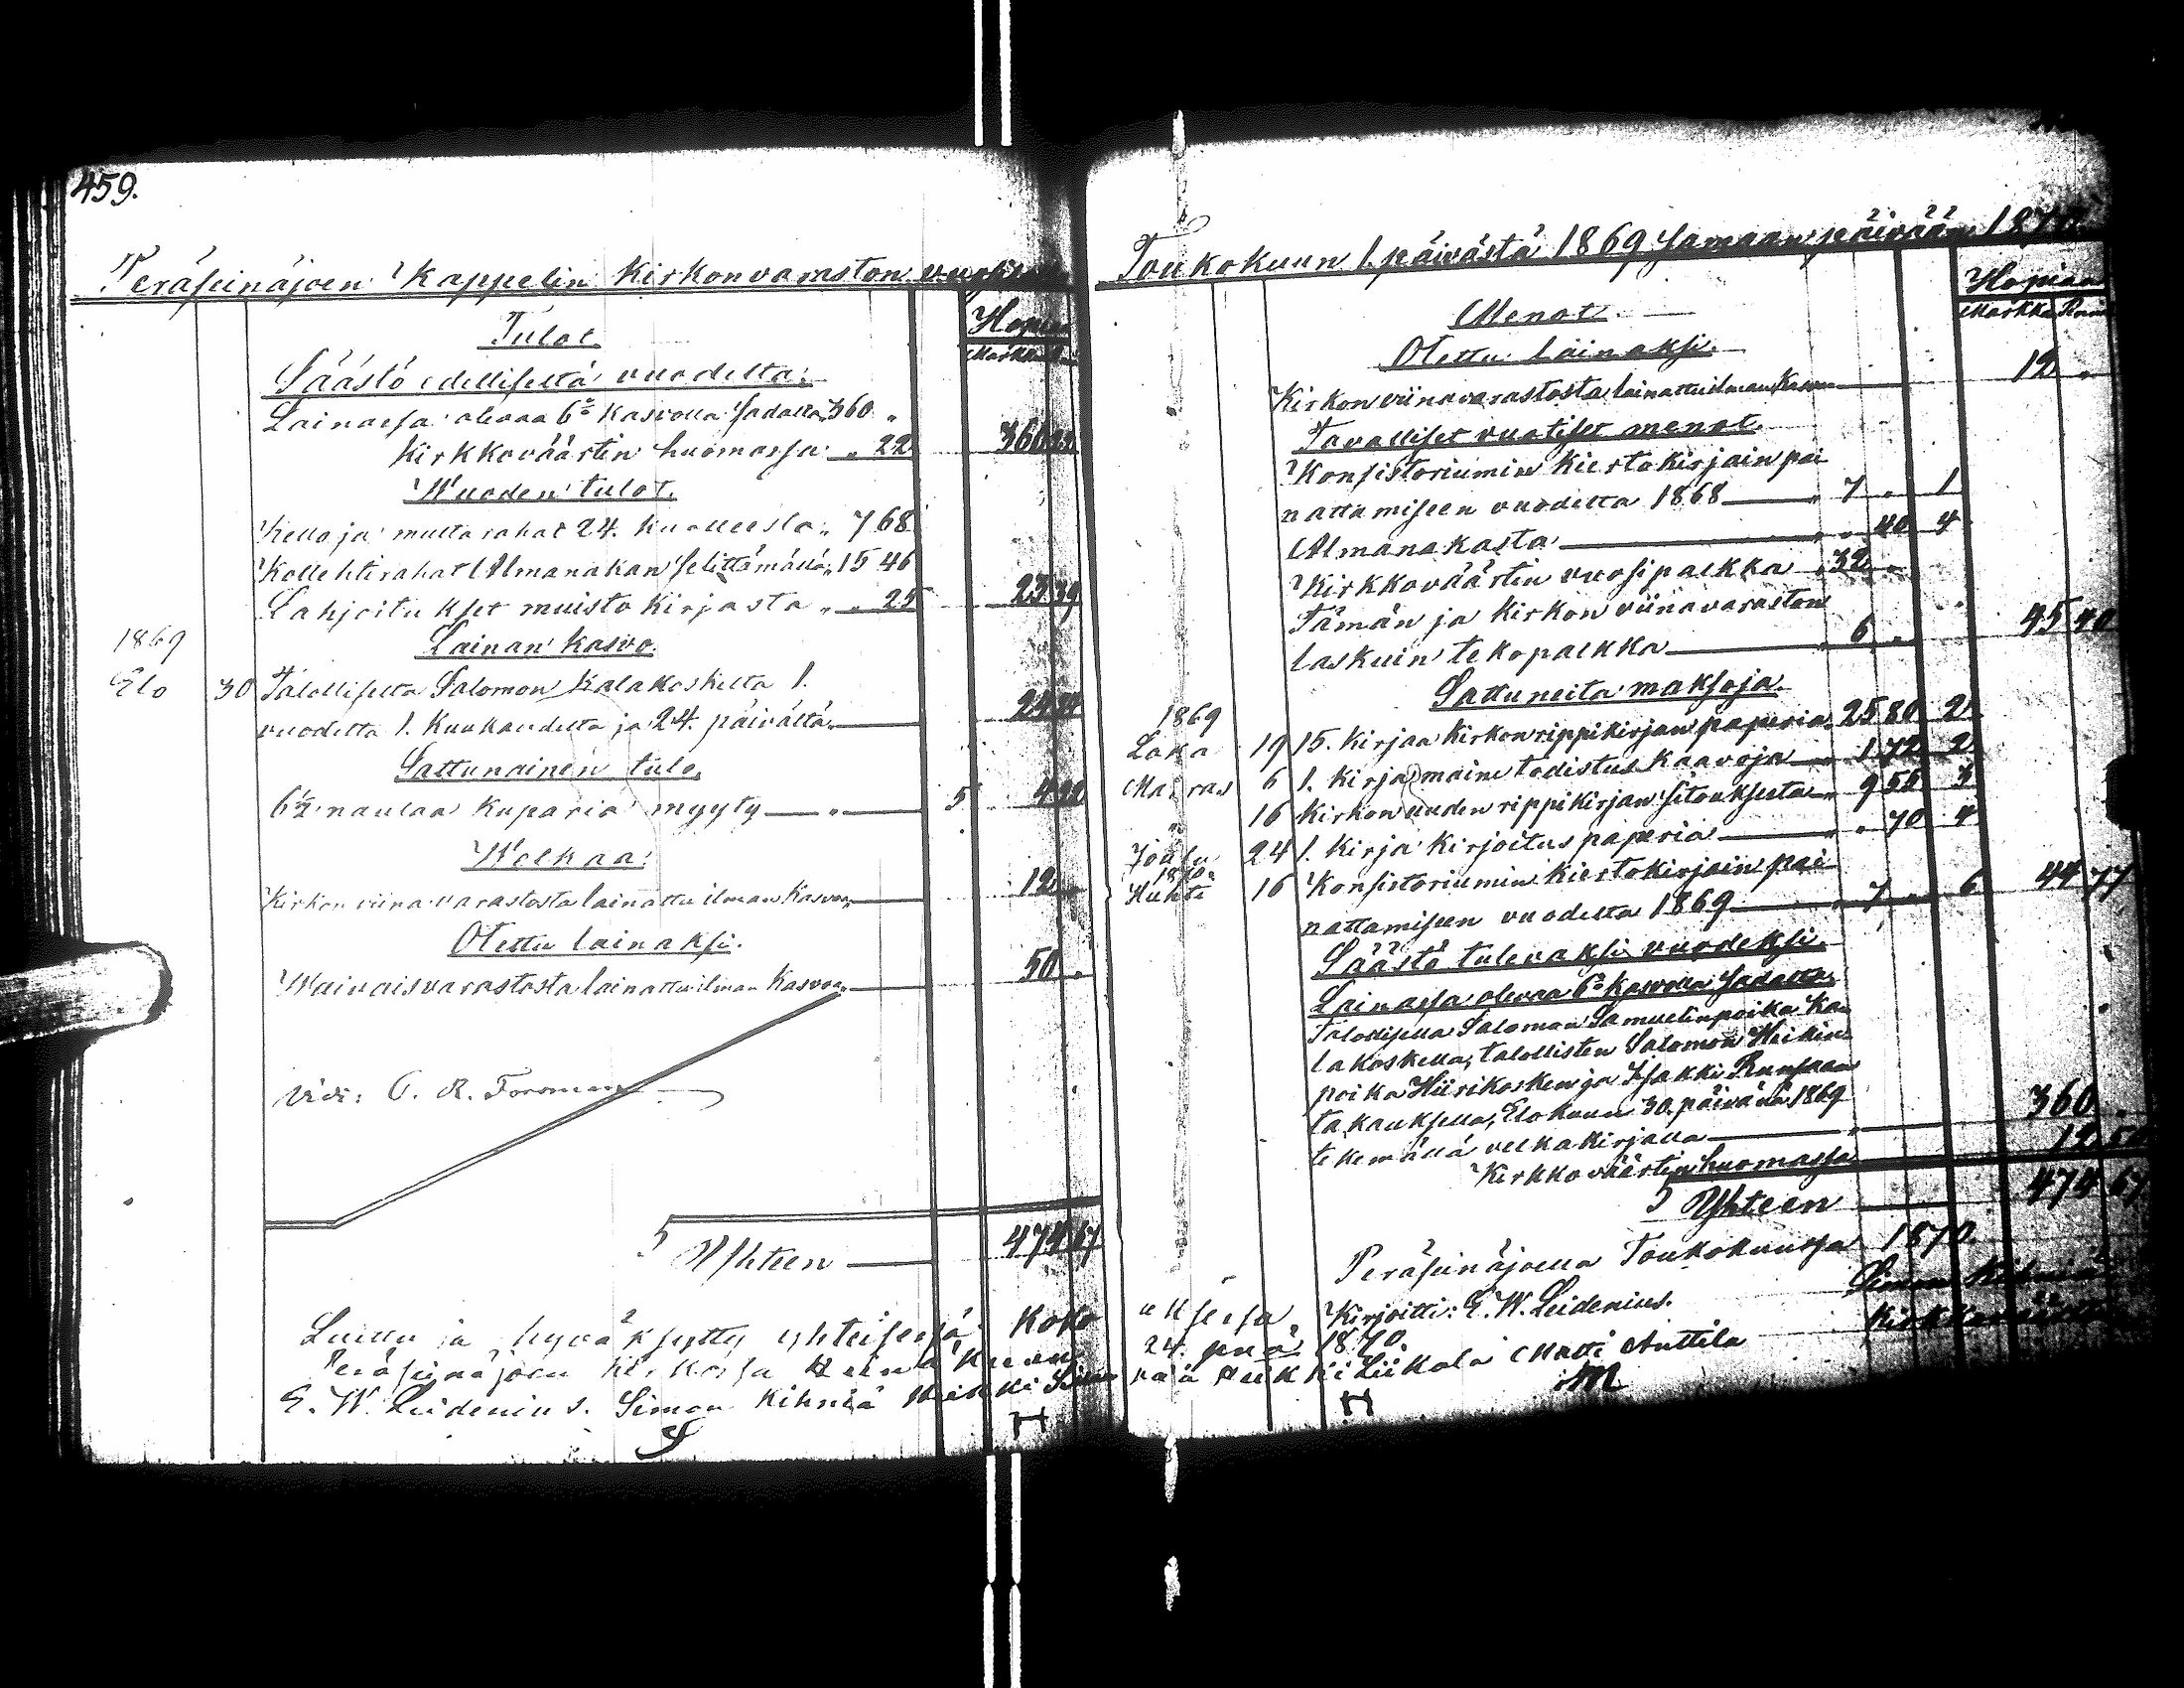 459.
Peräseinäjoen Kappelin Kirkonvaraston
Tulot.
Säästö edelliseltä vuodelta:
Lainassa olevaa 6% Kasvolla Sadalta „ 360 „
Kirkkoväärtin huomassa „ „ 22 360 22
Wuoden tulot.
Kello ja multarahat 24. Kuolleesta „ 7 68
Kollehtirahat Almanakan Selittämällä „ 15 46
Lahjoitukset muistokirjasta „ „ 25 23 39
1869
Lainan kasvo.
Elo 30 Talollisella Salomon Kalakoskelta 1.
vuodelta 1. Kuukaudelta ja 24. päivältä
Sattunainen tulo.
6½ naulaa Kuparia myyty — „ — 5
Welkaa:
Kirkon viinavarastosta lainattu ilman Kasvoa 12 „
Otettu lainaksi.
Waivaisvarastosta lainattu ilman Kasvoa 50 „
Vidi: C. R. Forsman
5 Yhteen 474 67
Luettu ja hyväksytty yhteisessä Koko
Peräseinäjoen Kirkossa
E. W. Leidenius. Simon Kihniä Heikki
S H
Toukokuun 1. päivästä 1869 Samaan päivään 1870.
Hopiaa
Markka
Menot.
Otettu lainaksi.
Kirkon viinavarastosta lainattu ilman Kasvoa 12 „
Tavalliset vuotiset menot.
Konsistoriumin Kiertokirjain pai-
nattamiseen vuodelta 1868 „ 7 „ 1
Almanakasta „ „ 40 4
Kirkkoväärtin vuosipalkka „ 32 „
Tämän ja Kirkon viinavaraston
laskuin tekopalkka „ 6 „ 45 40
Sattuneita maksoja.
1869
Loka 19 15. Kirjaa Kirkon rippikirjan paperia „ 25 80 2
Marras 6 1. Kirja maine todistus Kaavoja „ 1 72 2
„ 16 Kirkon uuden rippikirjan sitouksesta „ 9 55 3
Joulu 24 1. Kirja Kirjoitus paperia „ „ 70 4
1870.
Huhti 16 Konsistoriumin Kiertokirjain pai-
nattamiseen vuodelta 1869 „ 7 „ 6 44 77
Säästö tulevaksi vuodeksi.
Lainassa olevaa 6% Kasvolla Sadalta.
Talollisella Salomon Samuelinpoika Ka-
lakoskella, talollisten Salomon Heikin-
poika Hiirikosken ja Isakki Runsaan
takauksella, Elokuun 30. päivänä 1869
tekemällä velkakirjalla 360 „
Kirkkoväärtin huomassa 12 50
5 Yhteen 474 67
Peräseinäjoella Toukokuussa 1870
Kirjoitti: E. W. Leidenius. Simon Kihniä
24. pnä 1870.
Liikala Matti Anttila
H M